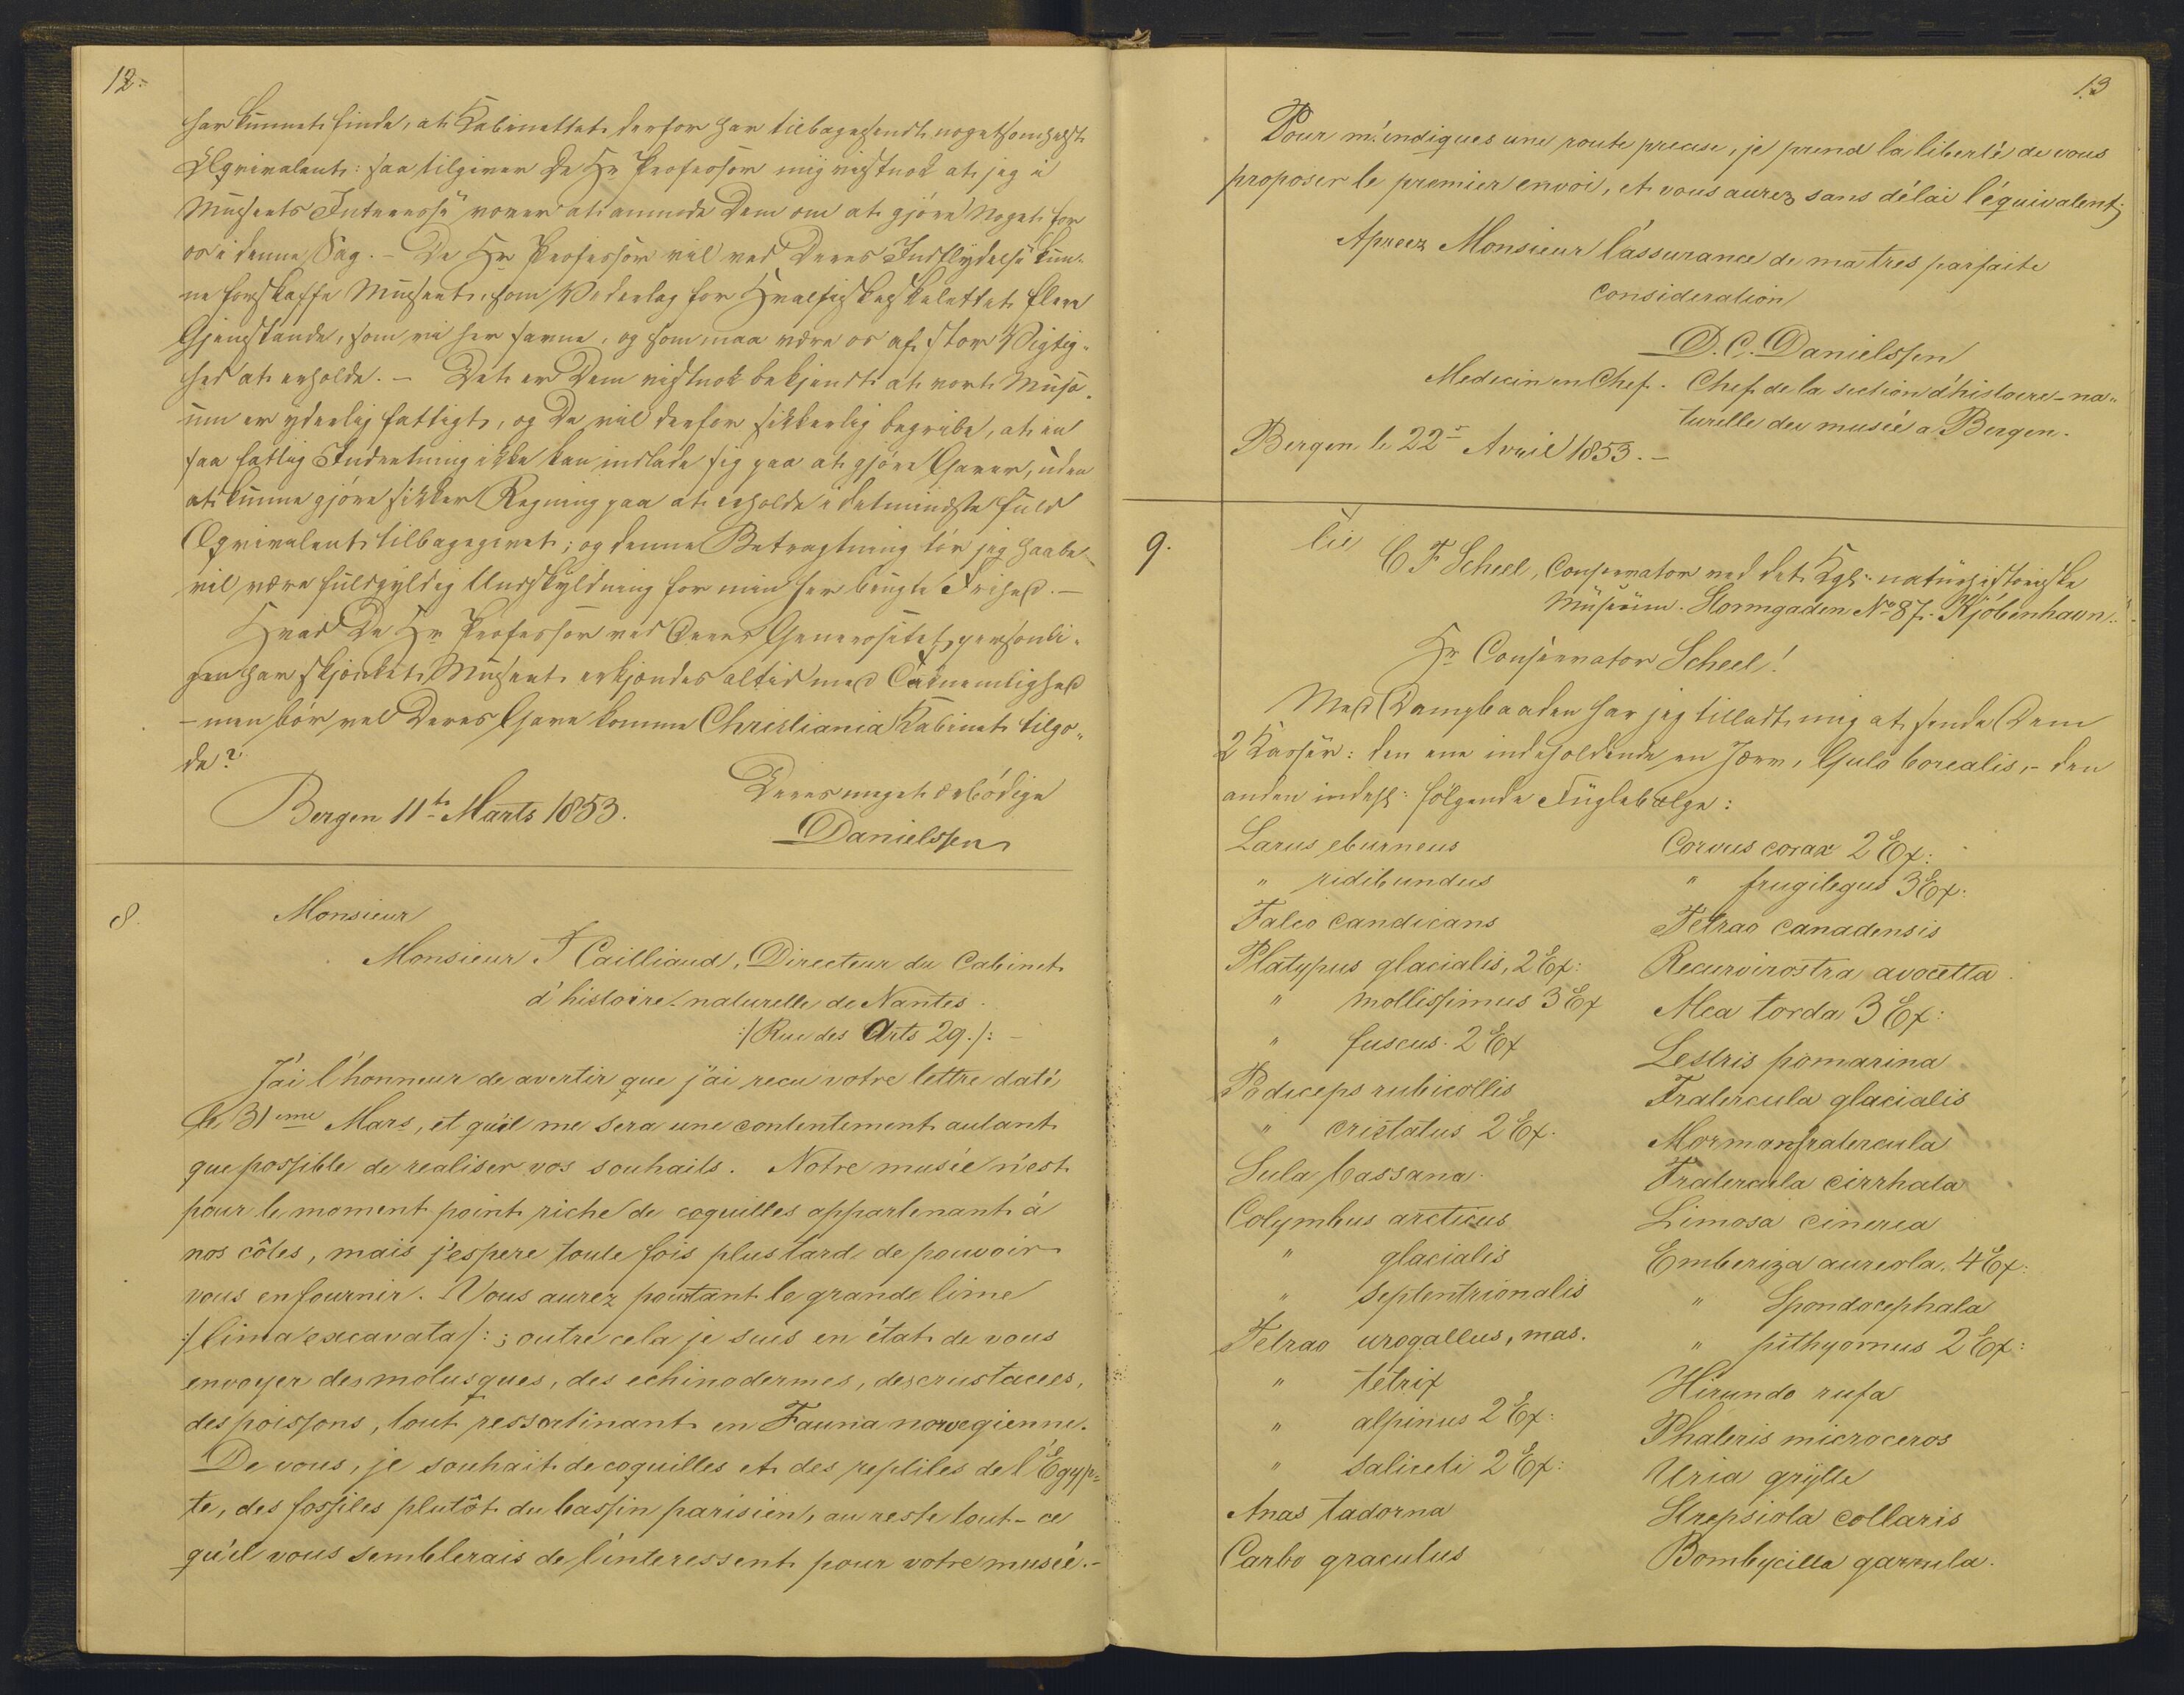 12.
har kunnet finde, at Kabinettet derfor har tilbagesendt nogetsomhelst
Æqvivalent: saa tilgiver De Hr Professor mig vistnok at jeg i
Museets Interesse vover at anmode Dem om at gjöre Noget for
os i denne Sag. – De Hr Professor vil ved Deres Indflydelse kun-
ne forskaffe Museet, som Vederlag for Hvalfiskeskelettet flere
Gjenstande, som vi her savne, og som maa være os af stor Vigtig-
hed at erholde. – Det er Dem vistnok bekjendt at vort Muse-
um er yderlig fattigt, og De vil derfor sikkerlig begribe, at en
saa fattig Indretning ikke kan indlade sig paa at gjöre Gaver, uden
at kunne gjöre sikker Regning paa at erholde i detmindste fuld
Æqvivalent tilbagegivet; og denne Betragtning tör jeg haabe
vil være fuldgyldig Undskyldning for min her brugte Frihed. –
Hvad De Hr Professor ved Deres Generositet personli-
gen har skjænket Museet erkjendes altid med Taknemlighed
– men bör vel Deres Gave komme Christiania Kabinet tilgo-
de?
Deres meget ærbödige
Bergen 11te Marts 1853.
Danielssen
8.
Monsieur
Monsieur F Cailliaud, Directeur du Cabinet
d'histoire-naturelle de Nantes.
:/Rue des Arts 29./: –
J'ai l'honneur de avertir que j'ai recu votre lettre daté
le 31eme Mars, et qu'il me sera une contentement autant
que possible de realiser vos souhaits. Notre musée n'est
pour le moment point riche de coquilles appartenant à
nos côtes, mais j'espere toute fois plus tard de pouvoir
vous en fournir. Vous aurez pourtant le grande lime
:/lima excavata/: ; outre cela je suis en état de vous
envoyer des molusques, des echinodermes, des crustacees,
des poissons, tout ressortinant en Fauna norvegienne.
De vous, je souhait de coquilles et des reptiles de l'Égyp-
te, des fossiles plutôt du bassin parisien, au reste tout-ce
qu'il vous semblerais de l'interessent pour votre musée. –
13
Pour m'endiques une route precise, je prend la liberté de vous
proposer le premier envoi, et vous aurez sans délai l'équivalent;
Apreez Monsieur l'assurance de ma tres parfaite
consideration
D. C. Danielssen
Medecin en Chef. Chef de la section d'histoere-na-
turelle du musée a Bergen.
Bergen le 22 Avril 1853. –
9.
C F Scheel, Conservator ved det Kgl: naturhistoriske
Museum. Stormgaden No 87. Kjöbenhavn.
Hr Conservator Scheel!
Med Dampbaaden har jeg tilladt mig at sende Dem
2 Kasser: den ene indeholdende en Jærv, Gulo borealis, – den
anden indeh: fölgende Fuglebælge:
Larus eburneus
" ridibundus
Falco candicans
Platypus glacialis, 2 Ex:
" mollissimus 3 Ex
" fuscus. 2 Ex
Podiceps rubicollis
" cristatus 2 Ex.
Sula bassana.
Colymbus arcticus
" glacialis
" septentrionalis
Tetrao urogallus, mas.
" tetrix
" alpinus 2 Ex:
" saliceti 2 Ex:
Anas tadorna
Carbo graculus
Corvus corax 2 Ex:
" frugilegus 3 Ex:
Tetrao canadensis
Recurvirostra avocetta.
Alca torda 3 Ex:
Lestris pomarina
Fratercula glacialis
Mormon fratercula
Fratercula cirrhata
Limosa cinerea
Emberiza aureola. 4 Ex:
" Spondocephala
" pithyornus 2 Ex:
Hirundo rufa
Phaleris microceros
Uria grylle
Strepsiola collaris
Bombycilla garrula.